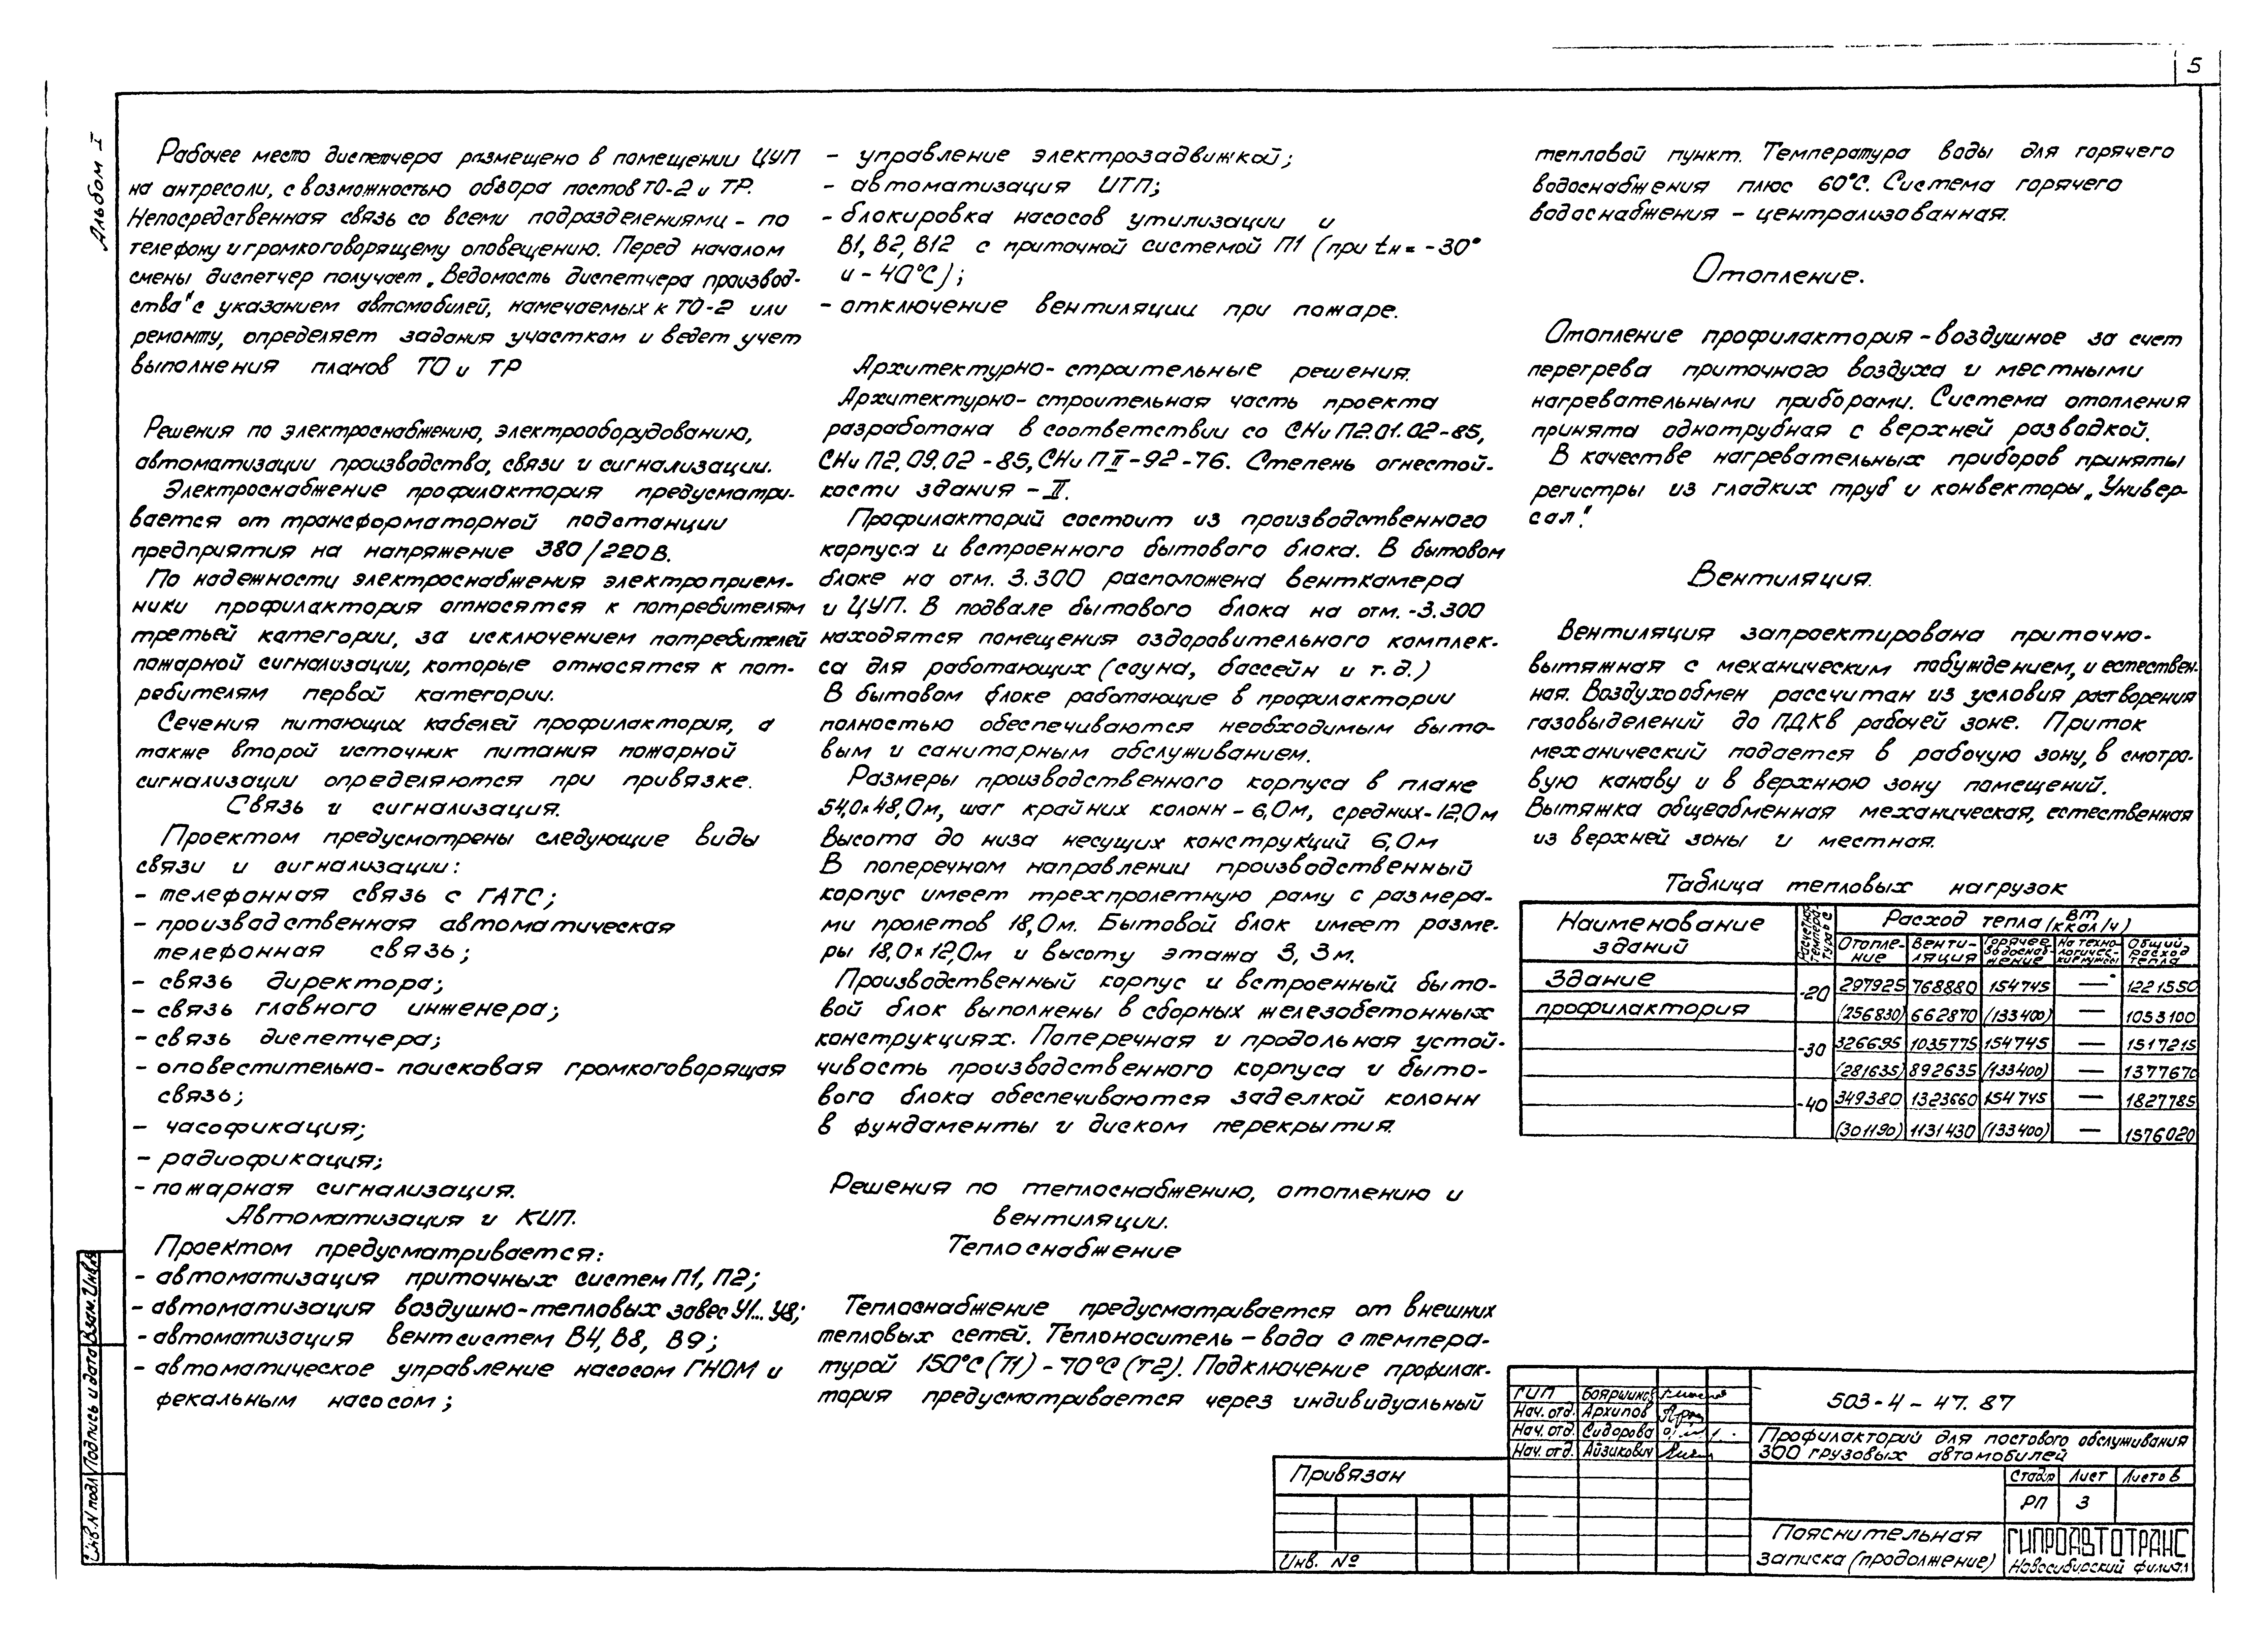 5
Альбом I
Рабочее место диспетчера размещено в помещении ЦУП
на антресоли, с возможностью обзора постов ТО-2 и ТР.
Непосредственная связь со всеми подразделениями - по
телефону и громкоговорящему оповещению. Перед началом
смены диспетчер получает „Ведомость диспетчера производ-
ства" с указанием автомобилей, намечаемых к ТО-2 или
ремонту, определяет задания участкам и ведет учет
выполнения планов ТО и ТР
Решения по электроснабжению, электрооборудованию,
автоматизации производства, связи и сигнализации.
Электроснабжение профилактория предусматри-
вается от трансформаторной подстанции
предприятия на напряжение 380/220 В.
По надежности электроснабжения электроприем-
ники профилактория относятся к потребителям
третьей категории, за исключением потребителей
пожарной сигнализации, которые относятся к пот-
ребителям первой категории.
Сечения питающих кабелей профилактория, а
также второй источник питания пожарной
сигнализации определяются при привязке.
Связь и сигнализация.
Проектом предусмотрены следующие виды
связи и сигнализации:
- телефонная связь с ГАТС;
- производственная автоматическая
телефонная связь;
- связь директора;
- связь главного инженера;
- связь диспетчера;
- оповестительно-поисковая громкоговорящая
связь;
- часофикация;
- радиофикация;
- пожарная сигнализация.
Автоматизация и КИП.
Проектом предусматривается:
- автоматизация приточных систем П1, П2;
- автоматизация воздушно-тепловых завес У1...У8;
- автоматизация вентсистем В4, В8, В9;
- автоматическое управление насосом ГНОМ и
фекальным насосом;
- управление электрозадвижкой;
- автоматизация ИТП;
- блокировка насосов утилизации и
В1, В2, В12 с приточной системой П1 (при tн = -30°
и -40°С);
- отключение вентиляции при пожаре.
Архитектурно-строительные решения.
Архитектурно-строительная часть проекта
разработана в соответствии со СНиП2.01.02-85,
СНиП2.09.02-85, СНиП II-92-76. Степень огнестой-
кости здания - II.
Профилакторий состоит из производственного
корпуса и встроенного бытового блока. В бытовом
блоке на отм. 3.300 расположена венткамера
и ЦУП. В подвале бытового блока на отм. -3.300
находятся помещения оздоровительного комплек-
са для работающих (сауна, бассейн и т.д.)
В бытовом блоке работающие в профилактории
полностью обеспечиваются необходимым быто-
вым и санитарным обслуживанием.
Размеры производственного корпуса в плане
54,0×48,0м, шаг крайних колонн - 6,0м, средних-12,0м
Высота до низа несущих конструкций 6,0м
В поперечном направлении производственный
корпус имеет трехпролетную раму с размера-
ми пролетов 18,0м. Бытовой блок имеет разме-
ры 18,0×12,0м и высоту этажа 3,3м.
Производственный корпус и встроенный быто-
вой блок выполнены в сборных железобетонных
конструкциях. Поперечная и продольная устой-
чивость производственного корпуса и быто-
вого блока обеспечиваются заделкой колонн
в фундаменты и диском перекрытия.
Решения по теплоснабжению, отоплению и
вентиляции.
Теплоснабжение
Теплоснабжение предусматривается от внешних
тепловых сетей. Теплоноситель - вода с темпера-
турой 150°С (Т1) - 70°С (Т2). Подключение профилак-
тория предусматривается через индивидуальный
тепловой пункт. Температура воды для горячего
водоснабжения плюс 60°С. Система горячего
водоснабжения - централизованная.
Отопление.
Отопление профилактория - воздушное за счет
перегрева приточного воздуха и местными
нагревательными приборами. Система отопления
принята однотрубная с верхней разводкой.
В качестве нагревательных приборов приняты
регистры из гладких труб и конвекторы „Универ-
сал".
Вентиляция.
Вентиляция запроектирована приточно-
вытяжная с механическим побуждением, и естествен-
ная. Воздухообмен рассчитан из условия растворения
газовыделений до ПДК в рабочей зоне. Приток
механический подается в рабочую зону, в смотро-
вую канаву и в верхнюю зону помещений.
Вытяжка общеобменная механическая, естественная
из верхней зоны и местная.
Таблица тепловых нагрузок
Наименование зданий | Расчетная температура °С | Расход тепла Вт (ккал/ч)
Отопле-ние | Венти-ляция | Горячее водоснаб-жение | На техно-логичес-кие нужды | Общий расход тепла
Здание | -20 | 297925 | 768880 | 154745 | — | 1221550
профилактория | (256830) | 662870 | (133400) | — | 1053100
-30 | 326695 | 1035775 | 154745 | — | 1517215
(281635) | 892635 | (133400) | — | 1377670
-40 | 349380 | 1323660 | 154745 | — | 1827785
(301190) | 1131430 | (133400) | — | 1576020
ГИП Бояршинов
Нач. отд. Архипов
Нач. отд. Сидорова
Нач. отд. Айзикович
503-4-47.87
Профилакторий для постового обслуживания
300 грузовых автомобилей
Стадия Лист Листов
РП 3
Пояснительная
записка (продолжение)
ГИПРОАВТОТРАНС
Новосибирский филиал
Привязан
Инв. №
Инв. N подл. Подпись и дата Взам. Инв. N